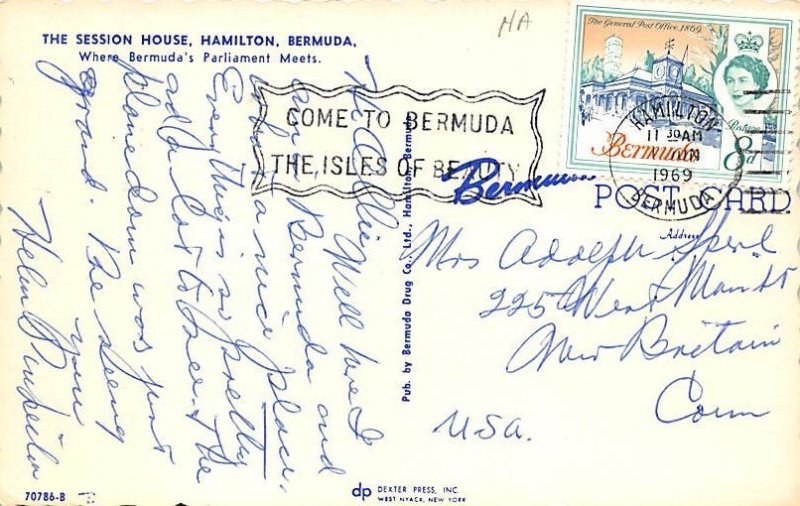 THE SESSION HOUSE, HAMILTON, BERMUDA,
Where Bermuda's Parliament Meets.
NA
The General Post Office, 1869
Postage
Bermuda 8d
HAMILTON
11 30 AM
JUN
1969
BERMUDA
COME TO BERMUDA
THE ISLES OF BEAUTY
Bermuda
POST CARD
Address
Hi
Well here I
am in Bermuda and
what a nice place.
Everything is so pretty
and a lot to see. The
plane down was just
grand. Be seeing
you
Helen
Pub. by Bermuda Drug Co., Ltd., Hamilton, Bermuda
Mrs Adolph
225 West Main St
New Britain
Conn
USA.
70786-B
dp DEXTER PRESS, INC.
WEST NYACK, NEW YORK